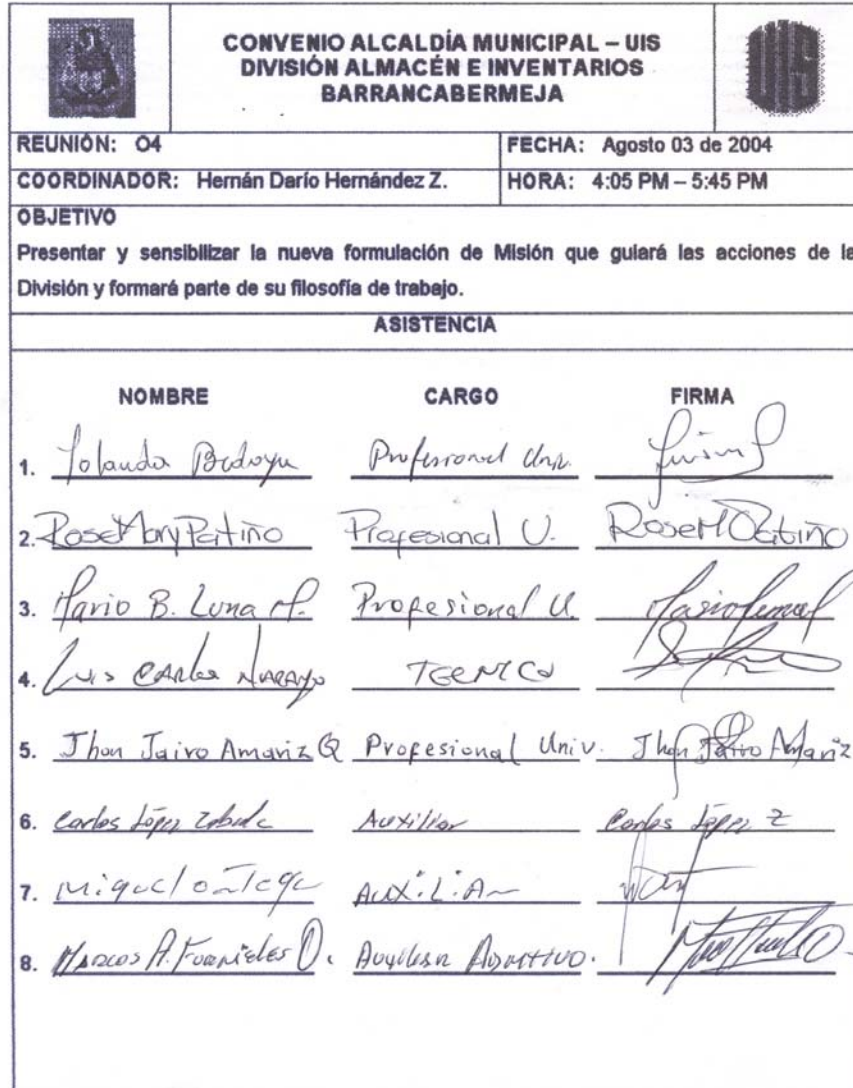 CONVENIO ALCALDÍA MUNICIPAL – UIS
DIVISIÓN ALMACÉN E INVENTARIOS
BARRANCABERMEJA
UIS
REUNIÓN: O4 FECHA: Agosto 03 de 2004
COORDINADOR: Hernán Darío Hernández Z. HORA: 4:05 PM – 5:45 PM
OBJETIVO
Presentar y sensibilizar la nueva formulación de Misión que guiará las acciones de la
División y formará parte de su filosofía de trabajo.
ASISTENCIA
NOMBRE CARGO FIRMA
1. Yolanda Bedoya Profesional Univ.
2. RoseMary Patiño Profesional U. RoseM Patiño
3. Mario B. Luna M. Profesional U.
4. Luis Carlos Naranjo TECNICO
5. Jhon Jairo Amariz Q Profesional Univ. Jhon Jairo Amariz
6. Carlos López Auxiliar Carlos López Z
7. Miguel Ortega Auxiliar
8. Marcos A. Fornieles O. Auxiliar